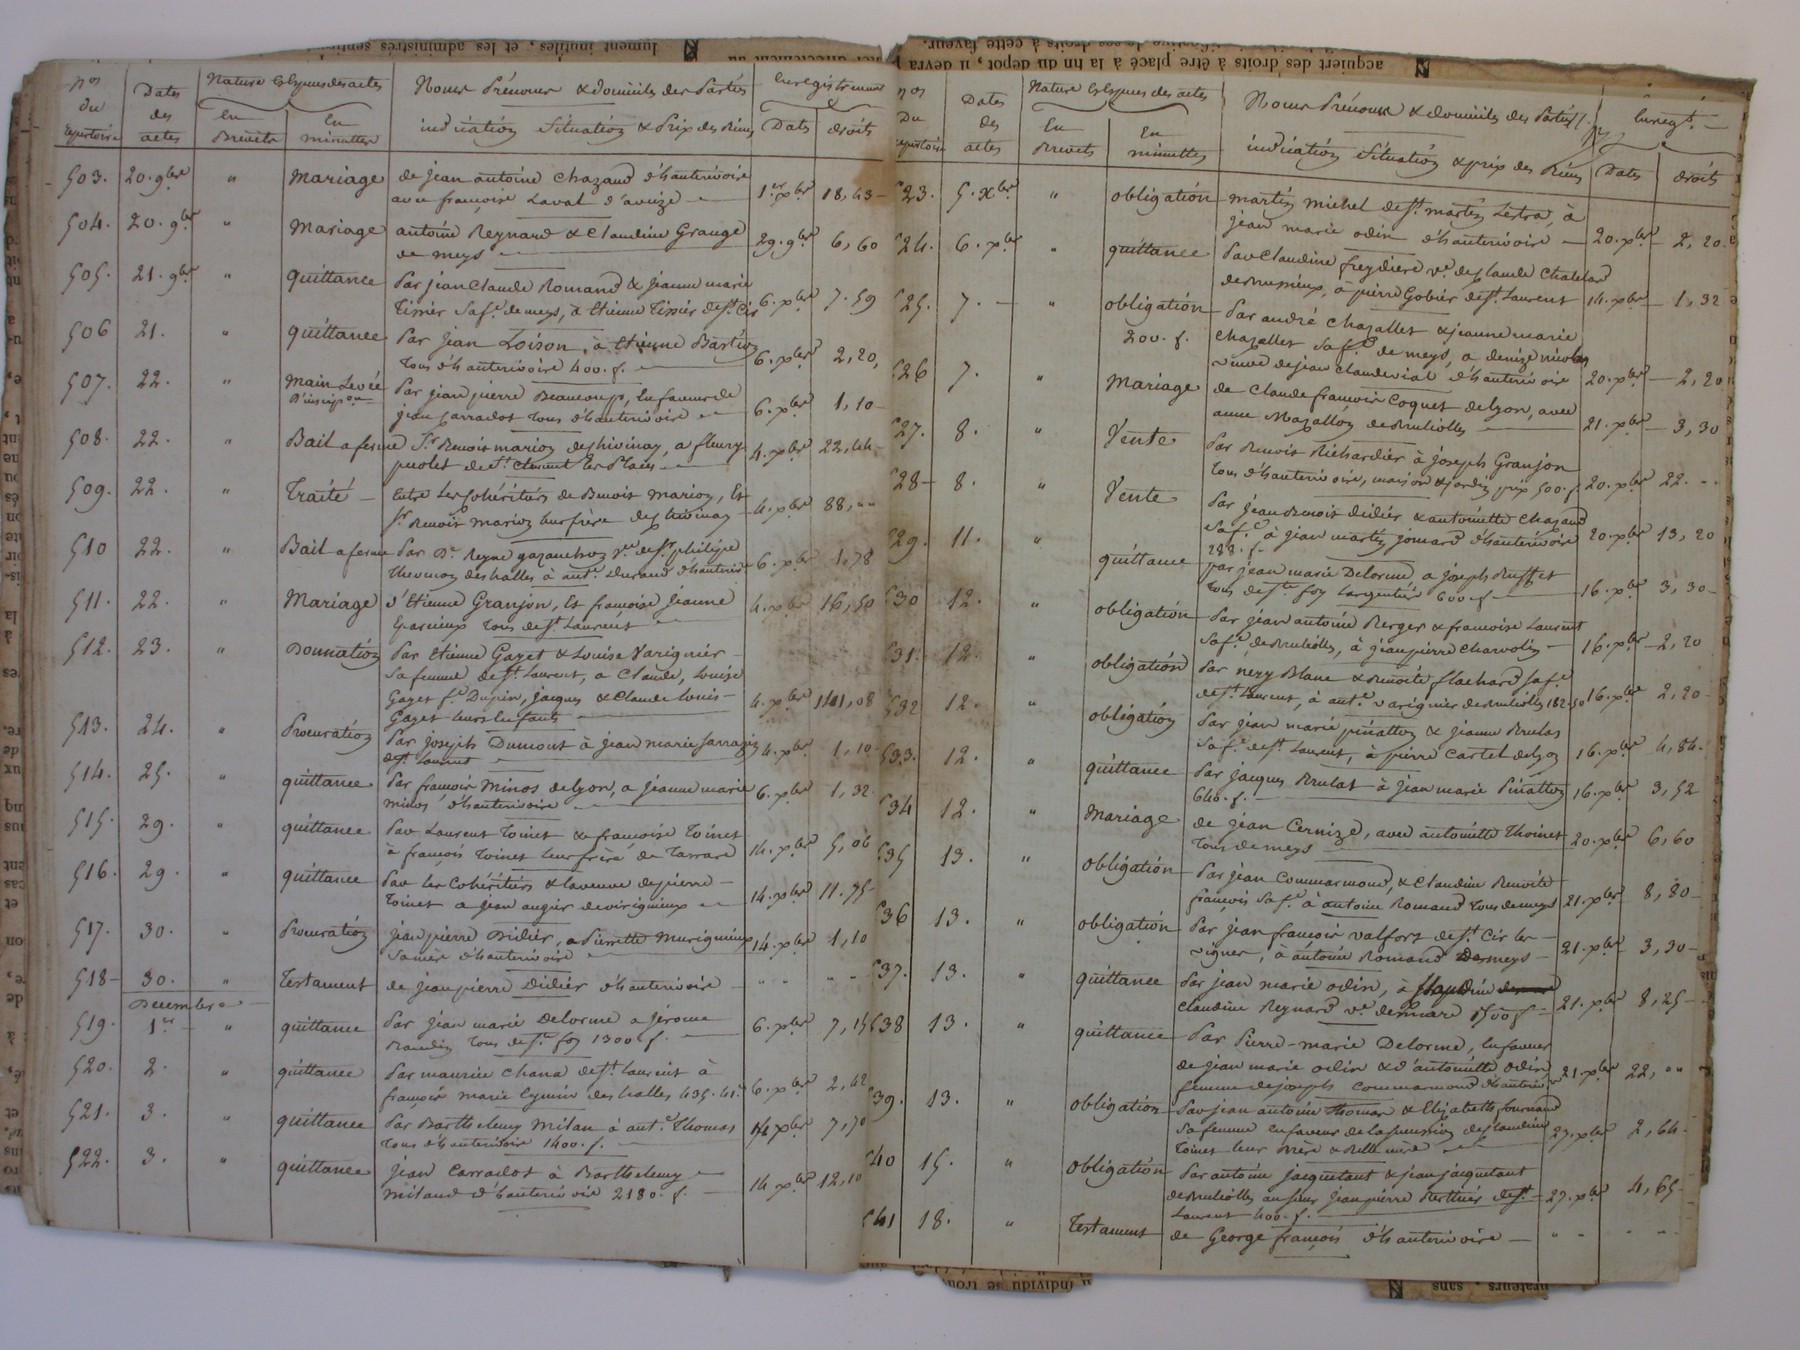 nos du Repertoire
Dates des actes
Nature & Especes des actes
En Brevets
En minutes
Noms Prénoms & domiciles des Parties
indication Situation & Prix des Biens
Enregistrement
Dates
droits
503. 20. 9bre " Mariage de jean antoine Chazaud d'hauterivoire 1er xbre 18,43
avec françoise Laval d'aveize
504. 20. 9bre " Mariage antoine Reynard & Claudine Grange 29. 9bre 6,60
de meys
505. 21. 9bre " quittance Par jean Claude Romand & jeanne marie
Tissier Sa fe. de meys, à Etienne Tissier de St. Cir 6. xbre 7.59
506 21. " quittance Par jean Loison, à Etienne Bastion
tous d'hauterivoire 400. f. 6. xbre 2,20,
507. 22. " Main Levée Par jean pierre Beaucoup, En faveur de
D'inscripon jean Carradot tous d'hauterivoire 6. xbre 1,10
508. 22. " Bail a ferme Sr. Benoit marion de chivinay, a fleury 4. xbre 22,44
puolet de St. Clement les Places
509. 22. " Traité Entre Les Cohéritiers de Benoit Marion, Et
Sr. Benoit marion leur frère de chivinay 4. xbre 88, ""
510 22. " Bail a ferme Par De. Reyne gazanchon ve. de Sr. philipe
thevenon des halles à ant.e Durand d'hauterivoire 6. xbre 1,78
511. 22. " Mariage d'Etienne Granjon, Et françoise jeanne 4. xbre 16,50
Eparcieux tous de St. Laurent
512. 23. " Donnation Par Etienne Gazet & Louise Varignier
Sa femme de St. Laurent, a Claude, Louise
Gazet fe. Dupin, jacques & Claude Louis 4. xbre 141,08
Gazet leurs Enfants
513. 24. " Procuration Par joseph Dumont à jean marie Sarrazin 4. xbre 1,10
de St. Laurent
514. 25. " quittance Par françois Minos de Lyon, a jeanne marie 6. xbre 1,32
minos d'hauterivoire
515. 29. " quittance Par Laurent Toinet & françoise Toinet
à françois Toinet leur frère de Tarrare 14. xbre 5,06
516. 29. " quittance Par les Cohéritiers & la veuve de pierre
Toinet a jean augier de virigneux 14. xbre 11.75
517. 30. " Procuration jean pierre Didier, a Pierrette Murigneux 14. xbre 1,10
Sa mère d'hauterivoire
518 30. " Testament de jean pierre Didier d'hauterivoire " "
Decembre
519. 1er " quittance Par jean marie Delorme a jerome 6. xbre 7,15
tous de Ste. foy 1300. f.
520. 2. " quittance Par maurice Chana de St. Laurent à
françois marie Eymin des halles 435. 41c. 6. xbre 2,62
521. 3. " quittance Par Barthelemy Milan à ant.e Thomas 14 xbre 7,70
tous d'hauterivoire 1400. f.
522. 3. " quittance jean Carradot à Barthelemy
Miland d'hauterivoire 2180. f. 14 xbre 12,10
nos Du Repertoire
Dates des actes
Nature & Especes des actes
En Brevets
En minutes
Noms Prénoms & domiciles des Parties
indication Situation & prix des Biens
Enregt.
Dates
droits
523. 5. xbre " obligation martin michel de St. martin Lestra, à
jean marie odin d'hauterivoire 20. xbre 2,20
524. 6. xbre " quittance Par Claudine freydiere ve. de Claude Chatelard
de Brussieux, à pierre Gobier de St. Laurent 14. xbre 1,32
525. 7. " obligation Par andré Chazallet & jeanne marie
200. f. Chazallet Sa fe. de meys, a denize nicolas
veuve de jean Claude vial d'hauterivoire 20. xbre 2,20
526 7. " Mariage de Claude françois Coquet de Lyon, avec
anne Mazallon de Brulioles 21. xbre 3,30
527. 8. " Vente Par Benoit Richardier à joseph Granjon
tous d'hauterivoire, maison & jardin prix 500. f. 20. xbre 22.
528 8. " Vente Par jean Benoit Didier & antoinette Chazaud
Sa fe. à jean martin jomard d'hauterivoire 20. xbre 13,20
288. f.
529. 11. " quittance par jean marie Delorme, a joseph Buffet
tous de Ste. foy Largentiere 600. f. 16. xbre 3,30
530 12. " obligation Par jean antoine Berger & francoise Laurent
Sa fe. de Brulioles, à jean pierre Charvolin 16. xbre 2,20
531. 12. " obligation Par nezy Blanc & Benoite flachard Sa fe.
de St. Laurent, à ant.e varignier de Brulioles 182.50 16. xbre 2,20
532 12. " obligation Par jean marie pinatton & jeanne Brulas
Sa fe. de St. Laurent, à pierre Cartel de Lyon 16. xbre 4,84
533. 12. " quittance Par jacques Brulas à jean marie Pinatton 16. xbre 3,52
640. f.
534 12. " Mariage de jean Cernize, avec antoinette Thoinet
tous de meys 20. xbre 6,60
535 13. " obligation Par jean Commarmond, & Claudine Benoite
françois Sa fe. à antoine Romand tous de meys 21. xbre 8,80
536 13. " obligation Par jean françois valfort de St. Cir les
vignes, à antoine Romand De meys 21. xbre 3,30
537. 13. " quittance Par jean marie odin, à
Claudine Reynard ve. 1500 f 21. xbre 8,25
538 13. " quittance Par Pierre-marie Delorme, En faveur
de jean marie odin & d'antoinette odin
femme de joseph Commarmond d'hauterivoire 21. xbre 22, ""
539. 13. " obligation Par jean antoine Thomas & Elizabeth fournand
Sa femme En faveur de la succession de Claudine 27. xbre 2,64
Toinet leur mère & Belle mère
540 15. " obligation Par antoine jacquetant & jean jacquetant
de Brulioles au Sieur jean pierre Berthier de St. 27. xbre 4,65
Laurent 400. f.
541 18. " Testament de George françois d'hauterivoire " "